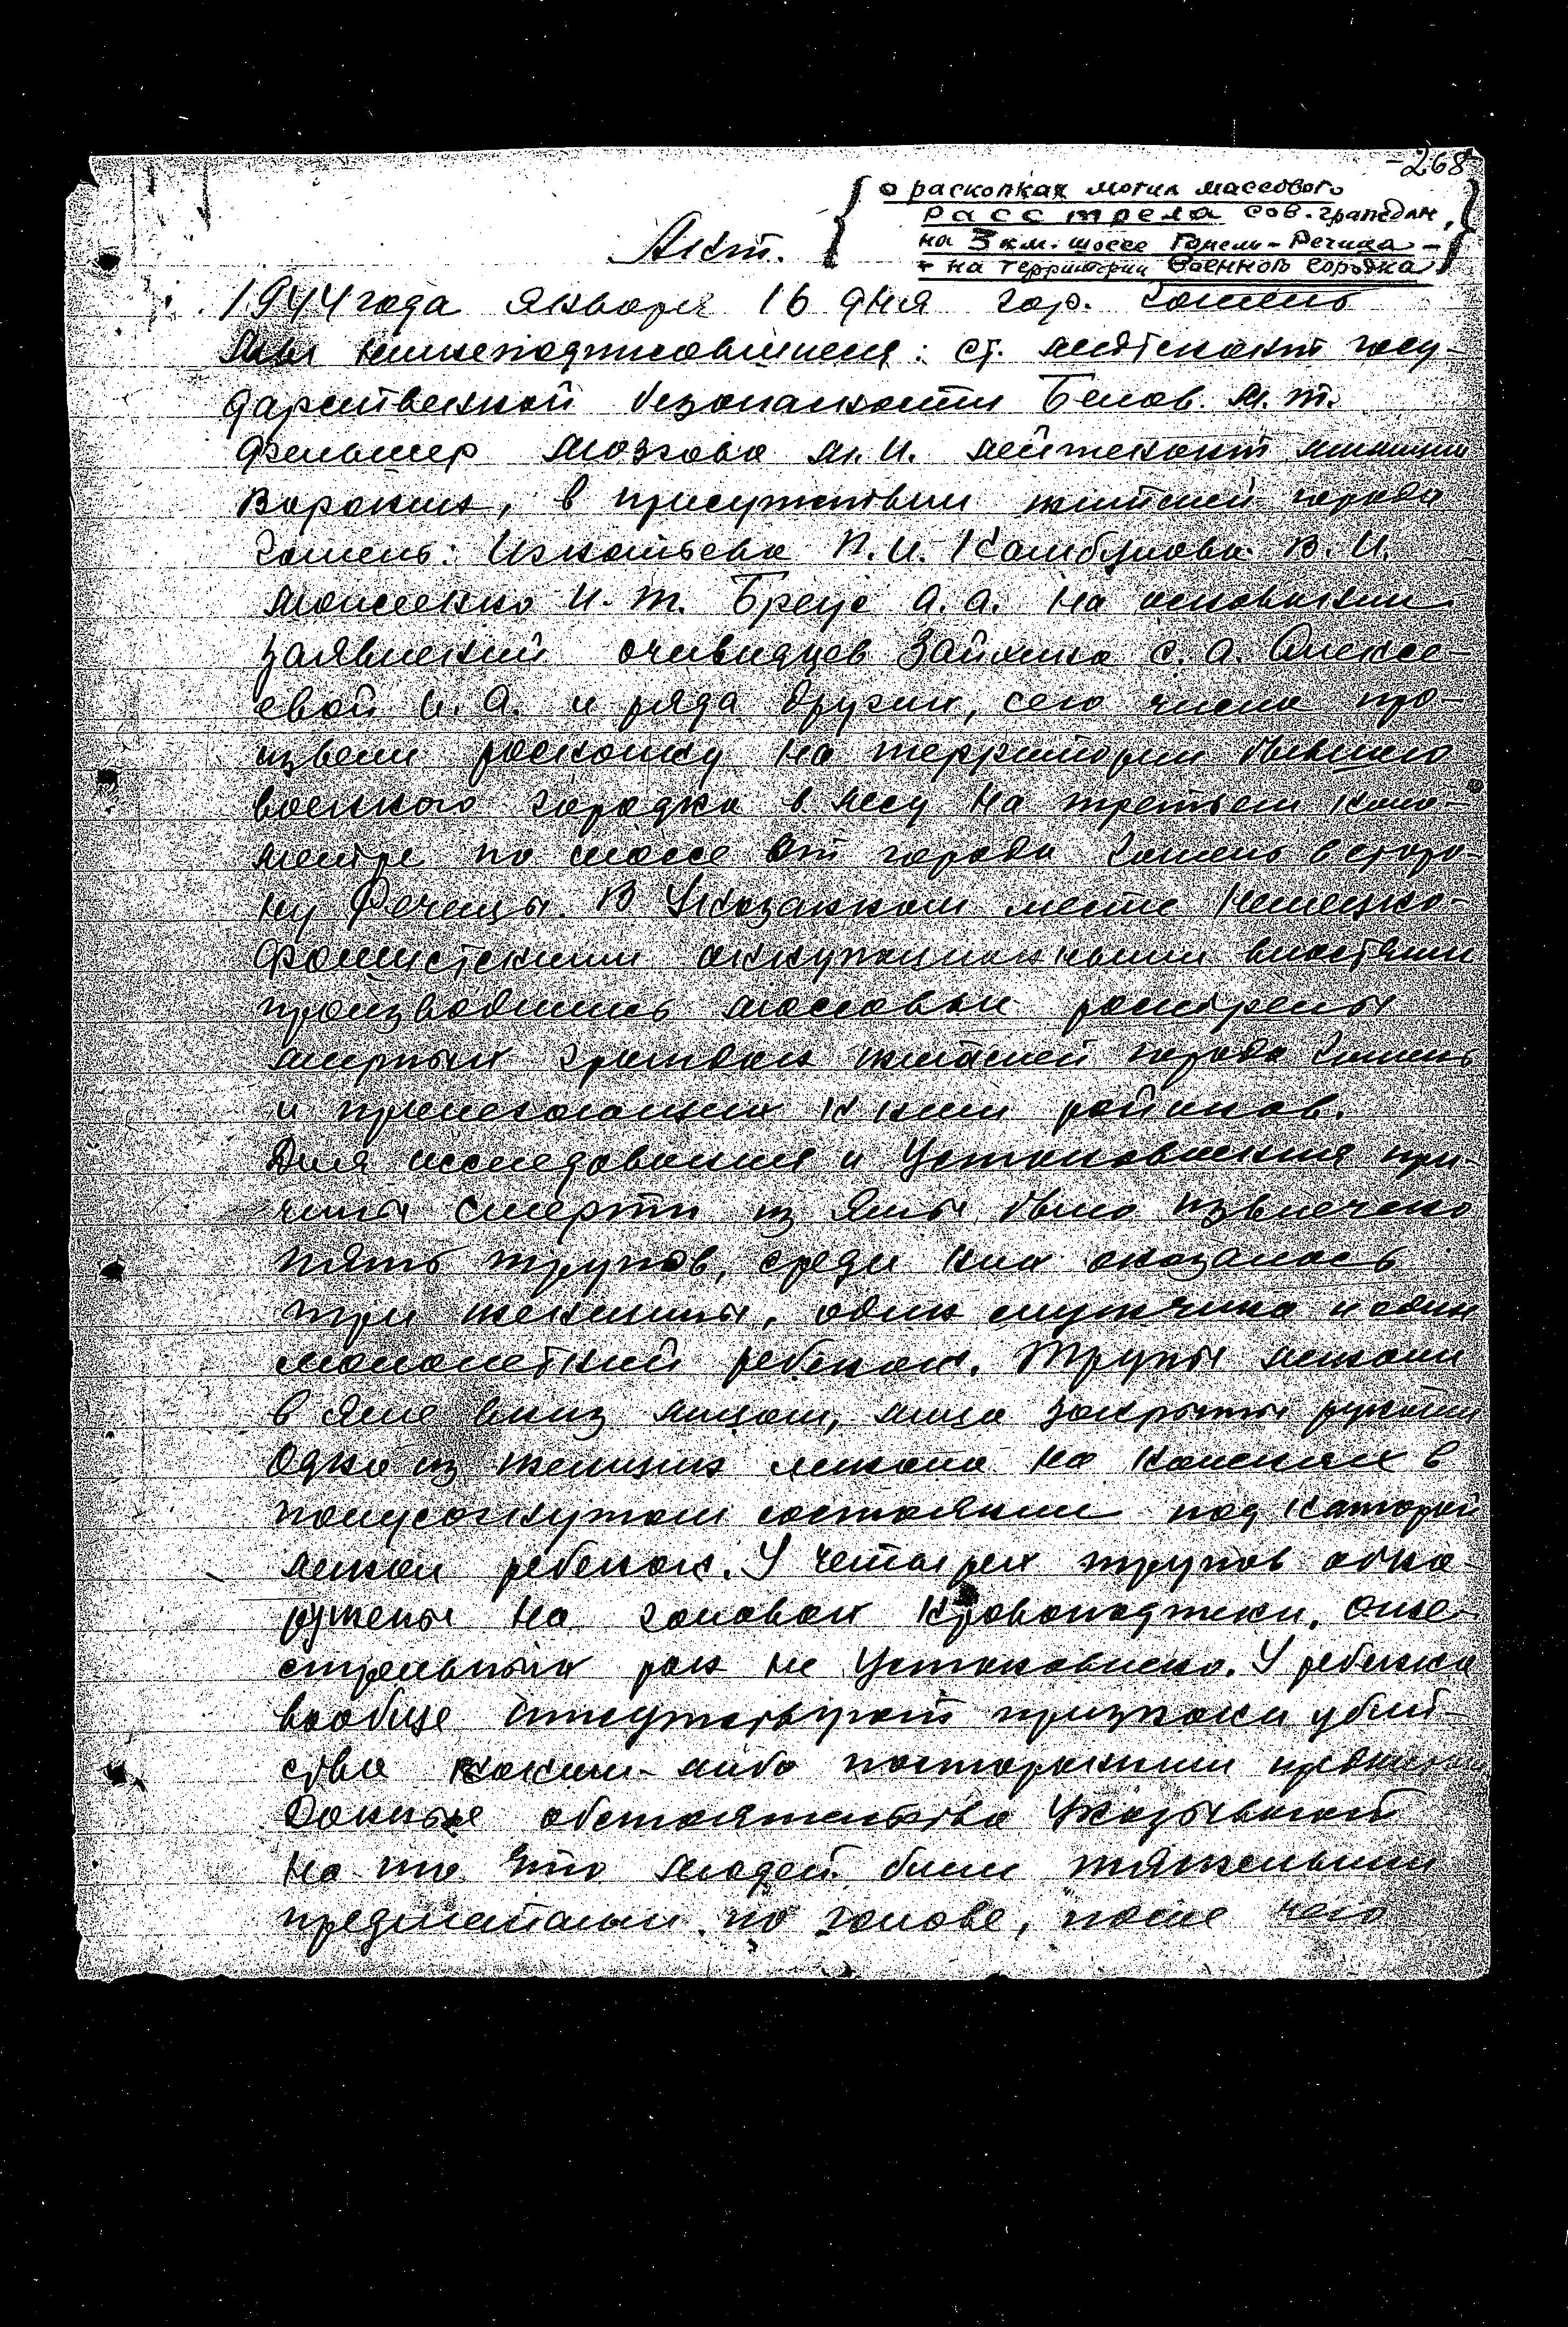 -268
о раскопках могил массового
расстрела сов. граждан,
на 3 км. шоссе Гомель-Речица -
- на территории военного городка
Акт.
1944 года января 16 дня гор. Гомель
Мы нижеподписавшиеся: ст. лейтенант госу-
дарственной безопасности Белов М.Т.
фельшер Мозгова М.И. лейтенант милиции
Воронин, в присутствии жителей города
Гомель: Игнатьева П.И. В.И.
И.Т. А.А. На основании
заявлений очевидцев С.А. Алексе-
евой И.А. и ряда других, сего числа про-
извели раскопку на территории бывшего
военного городка в лесу на третьем кило-
метре по шоссе от города Гомель в сторо-
ну Речицы. В указанном месте немецко-
фашистскими оккупационными властями
производились массовые расстрелы
мирных граждан жителей города Гомель
и прилегающих к ним районов.
Для исследования и установления при-
чины смерти из ямы было извлечено
пять трупов, среди них оказалось
три женщины, один мужчина и один
малолетний ребенок. Трупы лежали
в яме вниз лицом, лица закрыты руками
Одна из женщин лежала на коленях в
полусогнутом состоянии под которой
лежал ребенок. У четырех трупов обна-
ружены на головах кровоподтеки, огне-
стрельных ран не установлено. У ребенка
вообще отсутствуют признаки убий-
ства каким-либо посторонним
Данные обстоятельства указывают
на то что людей били тяжелыми
предметами по голове, после чего